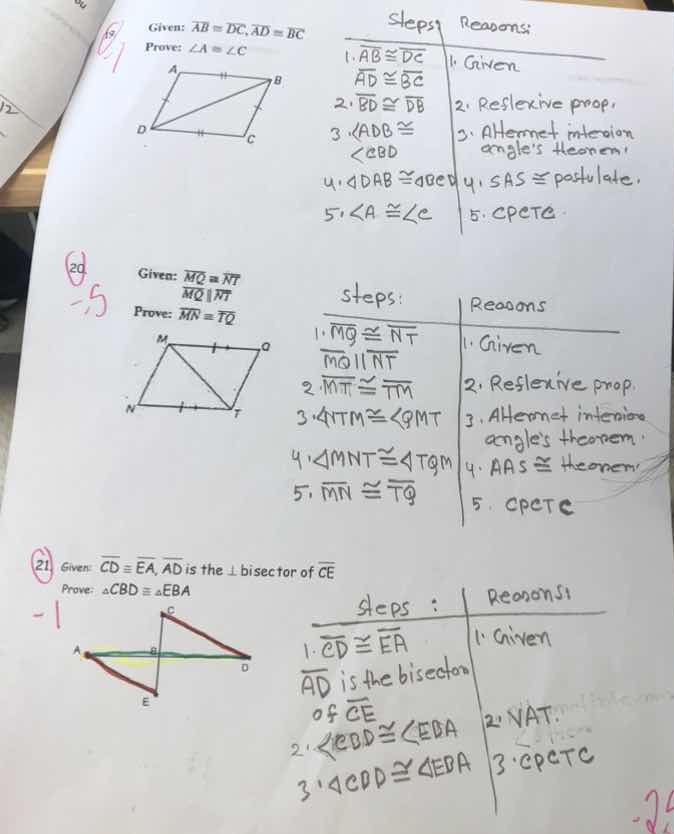 12
19.
-1
Given: AB ≅ DC, AD ≅ BC
Prove: ∠A ≅ ∠C
A
B
D
C
Steps: Reasons:
1. AB ≅ DC 1. Given
AD ≅ BC
2. BD ≅ DB 2. Reflexive prop.
3. ∠ADB ≅ 3. Alternet interion
∠CBD angle's theorem.
4. △DAB ≅ △BCD 4. SAS ≅ postulate.
5. ∠A ≅ ∠C 5. CPCTC.
20.
-.5
Given: MQ ≅ NT
MQ ∥ NT
Prove: MN ≅ TQ
M
Q
N
T
Steps: Reasons
1. MQ ≅ NT 1. Given
MQ ∥ NT
2. MT ≅ TM 2. Reflexive prop.
3. ∠NTM ≅ ∠QMT 3. Alternet interion
angle's theorem.
4. △MNT ≅ △TQM 4. AAS ≅ theorem.
5. MN ≅ TQ 5. CPCTC
21.
-1
Given: CD ≅ EA, AD is the ⊥ bisector of CE
Prove: △CBD ≅ △EBA
C
A
B
D
E
Steps: Reasons:
1. CD ≅ EA 1. Given
AD is the bisector
of CE
2. ∠CBD ≅ ∠EBA 2. VAT.
3. △CBD ≅ △EBA 3. CPCTC